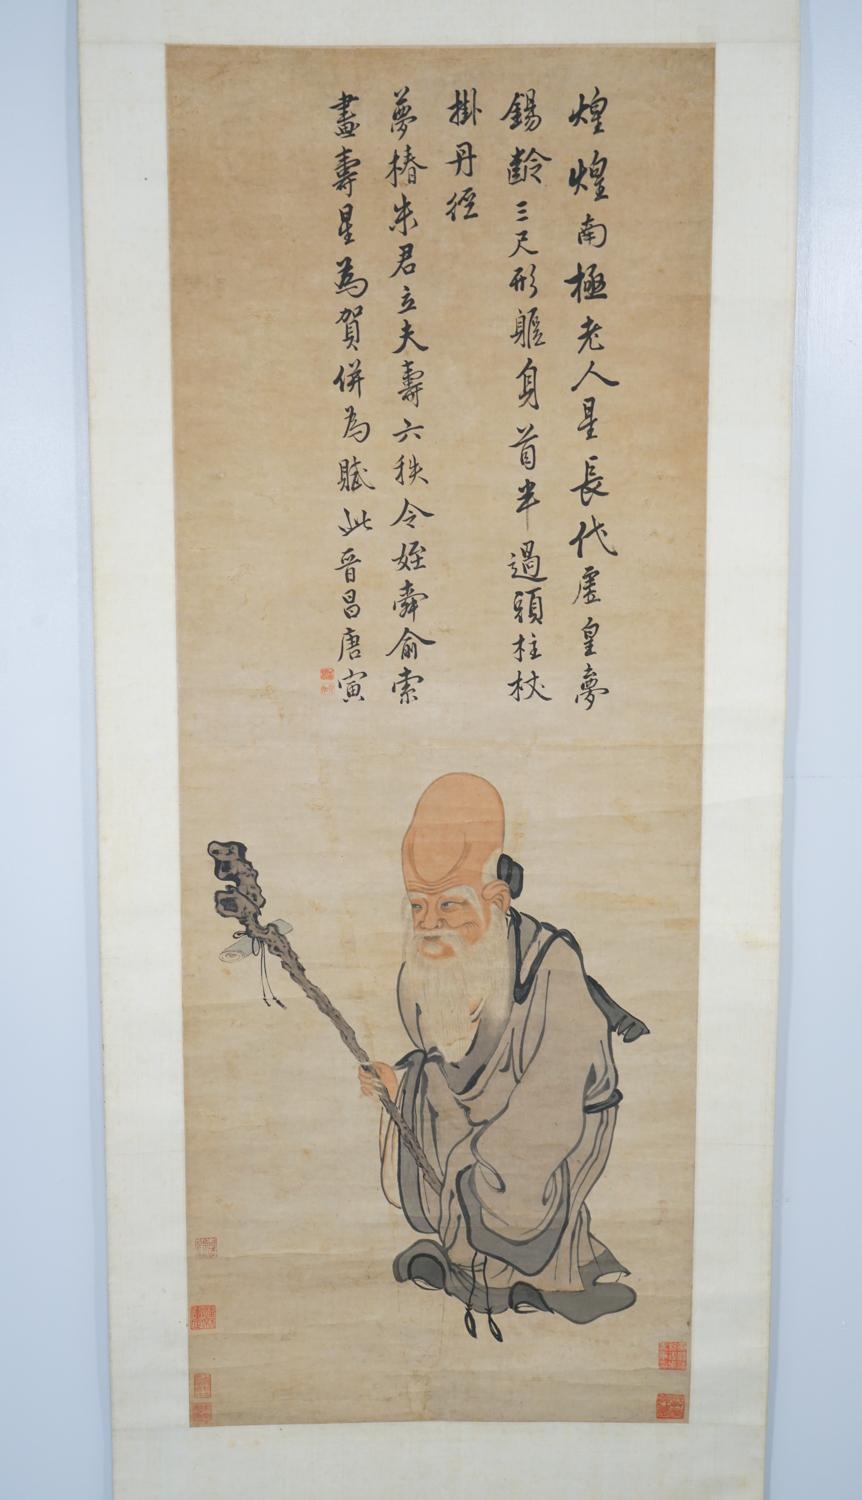 煌煌南極老人星長代虛皇夢
錫齡三尺形軀身首半過頭柱杖
掛丹徑
夢椿朱君立夫壽六秩令姪舜俞索
畫壽星為賀併為賦此晉昌唐寅